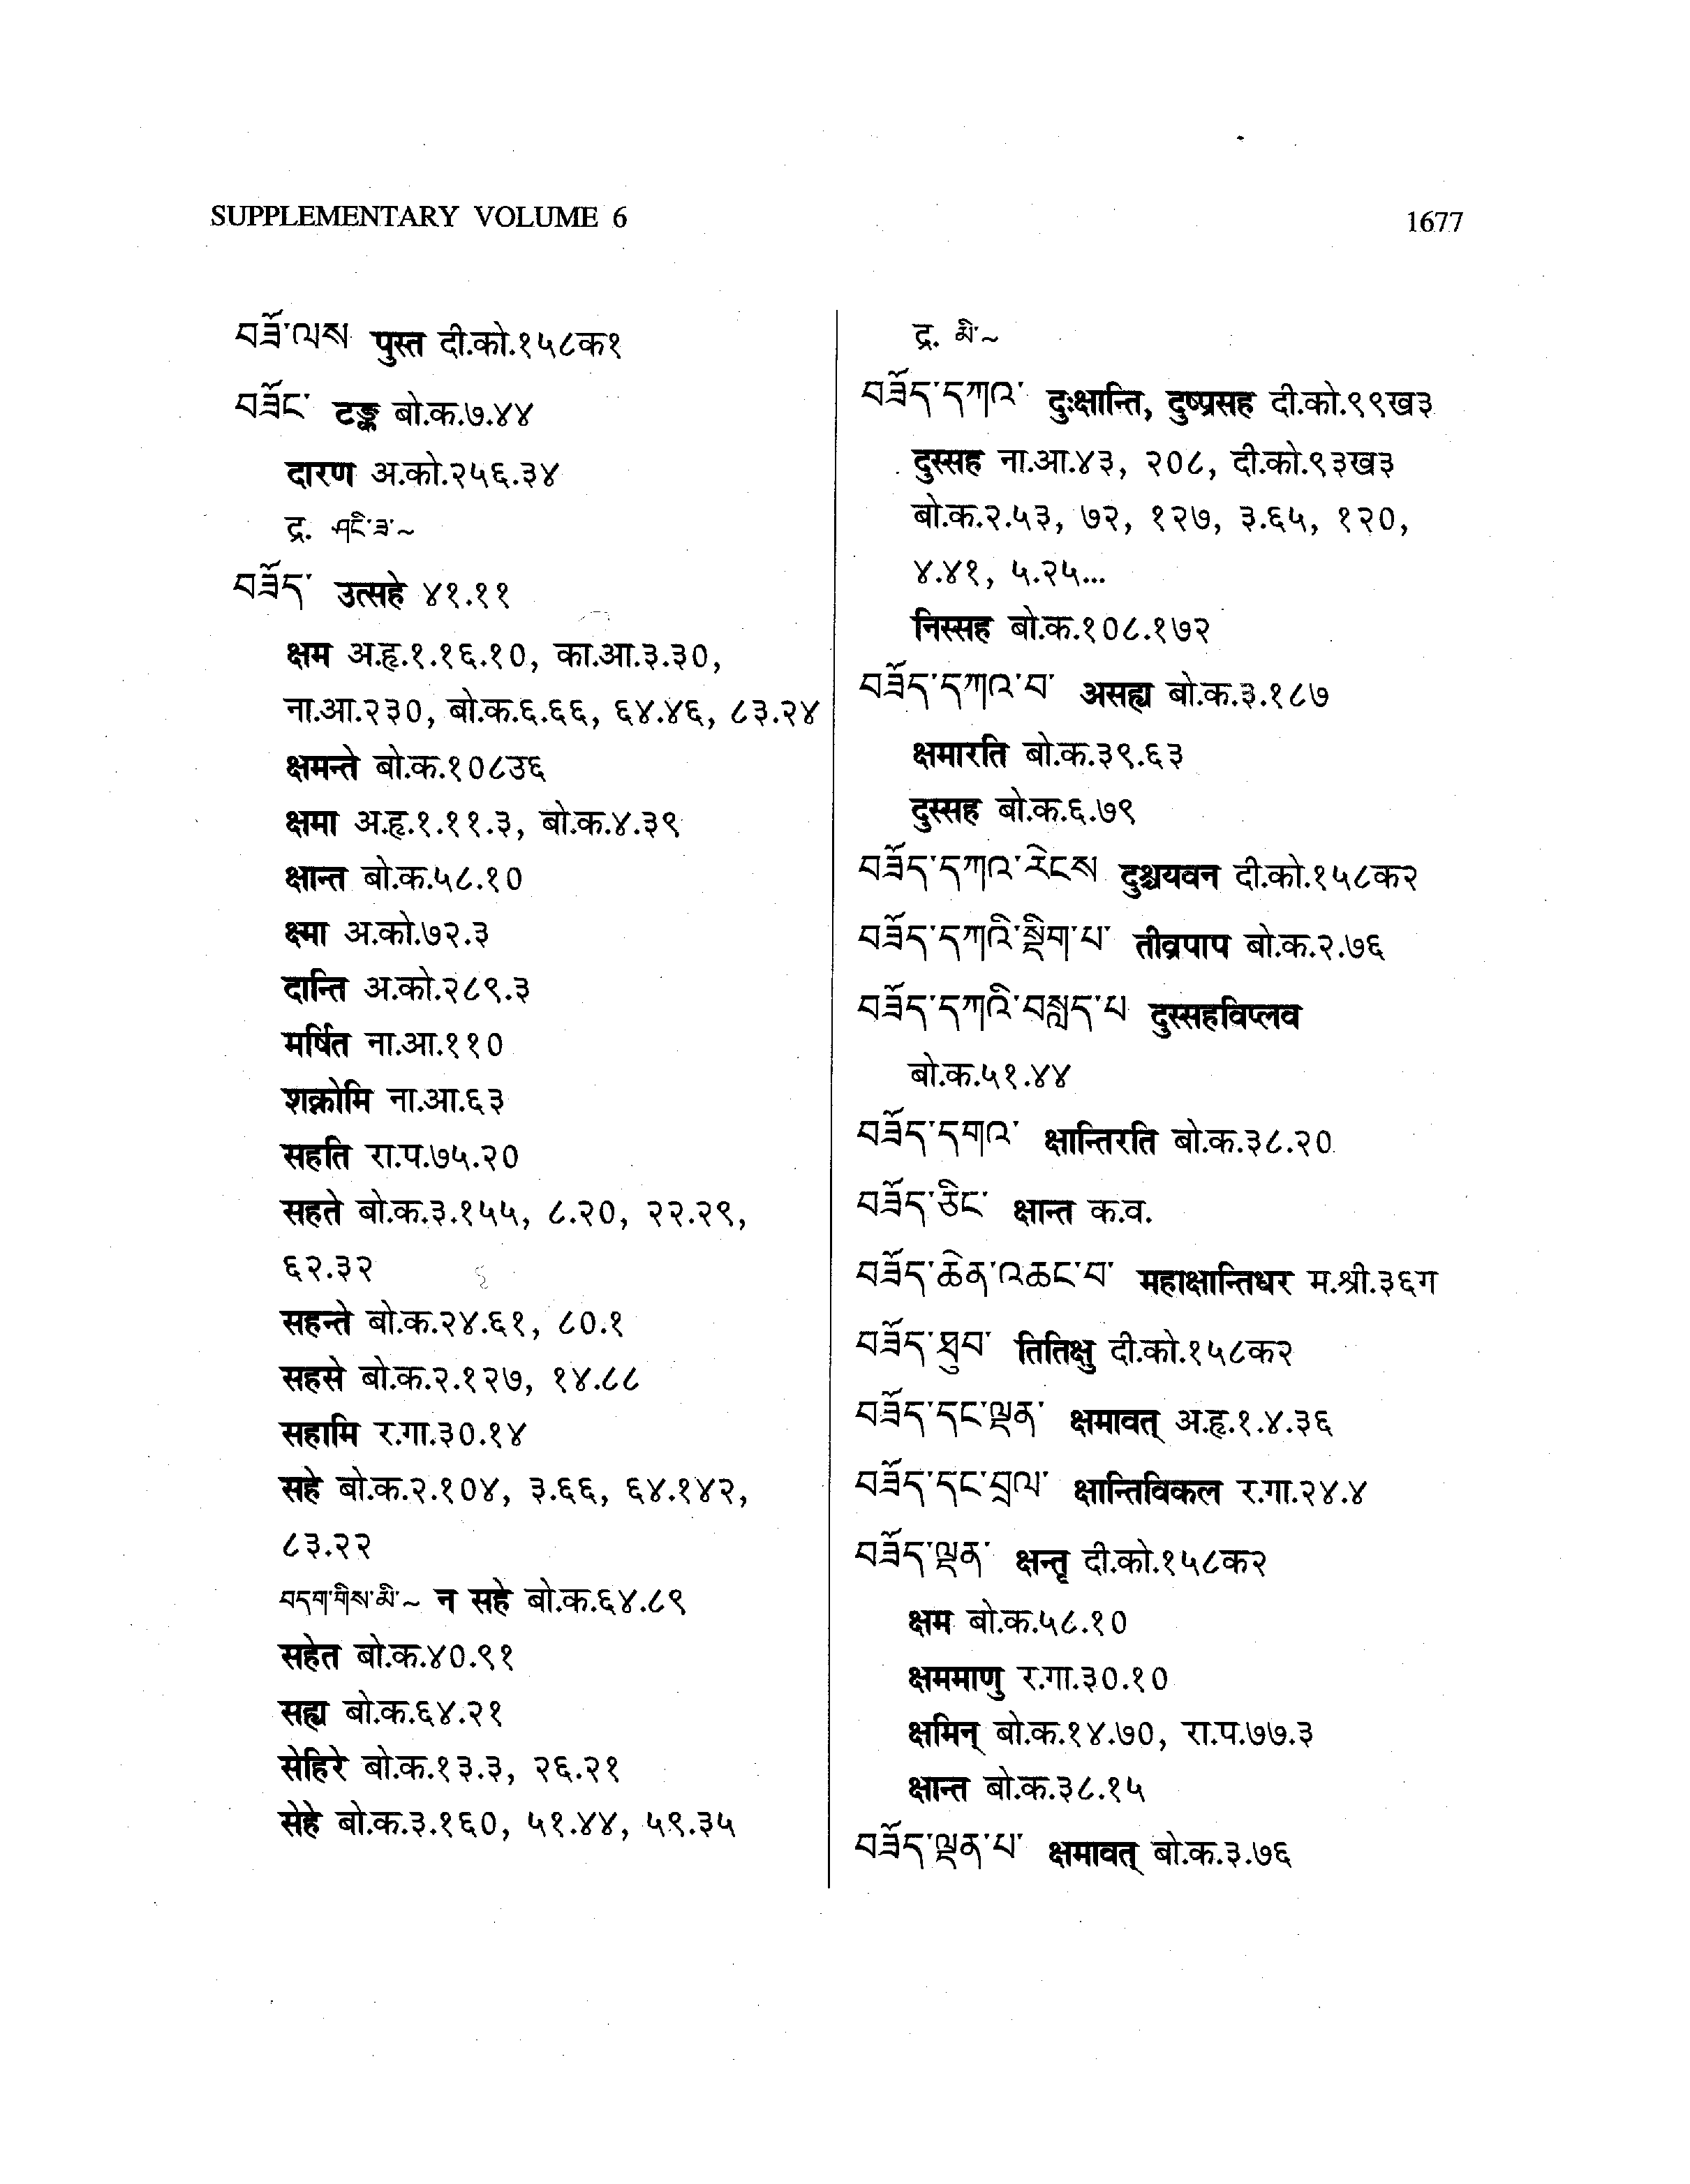 SUPPLEMENTARY VOLUME 6
1677
བཟོ་ལས པुस्त दी.को.१५८क१
བཟོང་ टङ्क बो.क.७.४४
दारण अ.को.२५६.३४
द्र. ཤང་ཟ་~
བཟོད་ उत्सहे ४१.११
क्षम अ.हृ.१.१६.१०, का.आ.३.३०,
ना.आ.२३०, बो.क.६.६६, ६४.४६, ८३.२४
क्षमन्ते बो.क.१०८उ६
क्षमा अ.हृ.१.११.३, बो.क.४.३९
क्षान्त बो.क.५८.१०
क्ष्मा अ.को.७२.३
दान्ति अ.को.२८९.३
मर्षित ना.आ.११०
शक्नोमि ना.आ.६३
सहति रा.प.७५.२०
सहते बो.क.३.१५५, ८.२०, २२.२९,
६२.३२
सहन्ते बो.क.२४.६१, ८०.१
सहसे बो.क.२.१२७, १४.८८
सहामि र.गा.३०.१४
सहे बो.क.२.१०४, ३.६६, ६४.१४२,
८३.२२
བདག་གིས་མི་~ न सहे बो.क.६४.८९
सहेत बो.क.४०.९१
सह्य बो.क.६४.२१
सेहिरे बो.क.१३.३, २६.२१
सेहे बो.क.३.१६०, ५१.४४, ५९.३५
द्र. མི་~
བཟོད་དཀའ་ दुःक्षान्ति, दुष्प्रसह दी.को.९९ख३
दुस्सह ना.आ.४३, २०८, दी.को.९३ख३
बो.क.२.५३, ७२, १२७, ३.६५, १२०,
४.४१, ५.२५...
निस्सह बो.क.१०८.१७२
བཟོད་དཀའ་བ་ असह्य बो.क.३.१८७
क्षमारति बो.क.३९.६३
दुस्सह बो.क.६.७९
བཟོད་དཀའ་རེངས दुश्च्यवन दी.को.१५८क२
བཟོད་དཀའི་སྡིག་པ་ तीव्रपाप बो.क.२.७६
བཟོད་དཀའི་བསླད་པ दुस्सहविप्लव
बो.क.५१.४४
བཟོད་དགའ་ क्षान्तिरति बो.क.३८.२०
བཟོད་ཅིང་ क्षान्त क.व.
བཟོད་ཆེན་འཆང་བ་ महाक्षान्तिधर म.श्री.३६ग
བཟོད་ཐུབ་ तितिक्षु दी.को.१५८क२
བཟོད་དང་ལྡན་ क्षमावत् अ.हृ.१.४.३६
བཟོད་དང་བྲལ་ क्षान्तिविकल र.गा.२४.४
བཟོད་ལྡན་ क्षन्तृ दी.को.१५८क२
क्षम बो.क.५८.१०
क्षममाणु र.गा.३०.१०
क्षमिन् बो.क.१४.७०, रा.प.७७.३
क्षान्त बो.क.३८.१५
བཟོད་ལྡན་པ་ क्षमावत् बो.क.३.७६